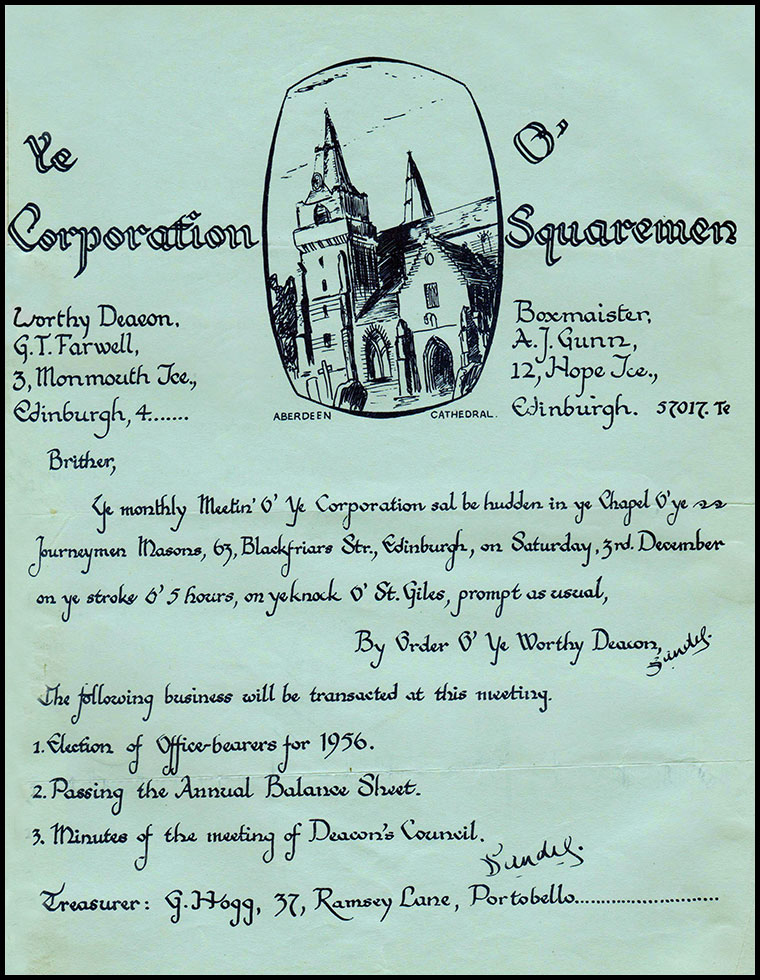 Ye O'
Corporation Squaremen
Worthy Deacon,
G.T. Farwell,
3, Monmouth Tce.,
Edinburgh, 4......
ABERDEEN CATHEDRAL.
Boxmaister,
A.J. Gunn,
12, Hope Tce.,
Edinburgh. 57017. Te
Brither,
Ye monthly Meetin' O' Ye Corporation sal be hudden in ye Chapel O' ye
Journeymen Masons, 63, Blackfriars Str., Edinburgh, on Saturday, 3rd. December
on ye stroke O' 5 hours, on ye knock O' St. Giles, prompt as usual,
By Order O' Ye Worthy Deacon,
The following business will be transacted at this meeting.
1. Election of Office-bearers for 1956.
2. Passing the Annual Balance Sheet.
3. Minutes of the meeting of Deacon's Council.
Treasurer: G. Hogg, 37, Ramsey Lane, Portobello..........................